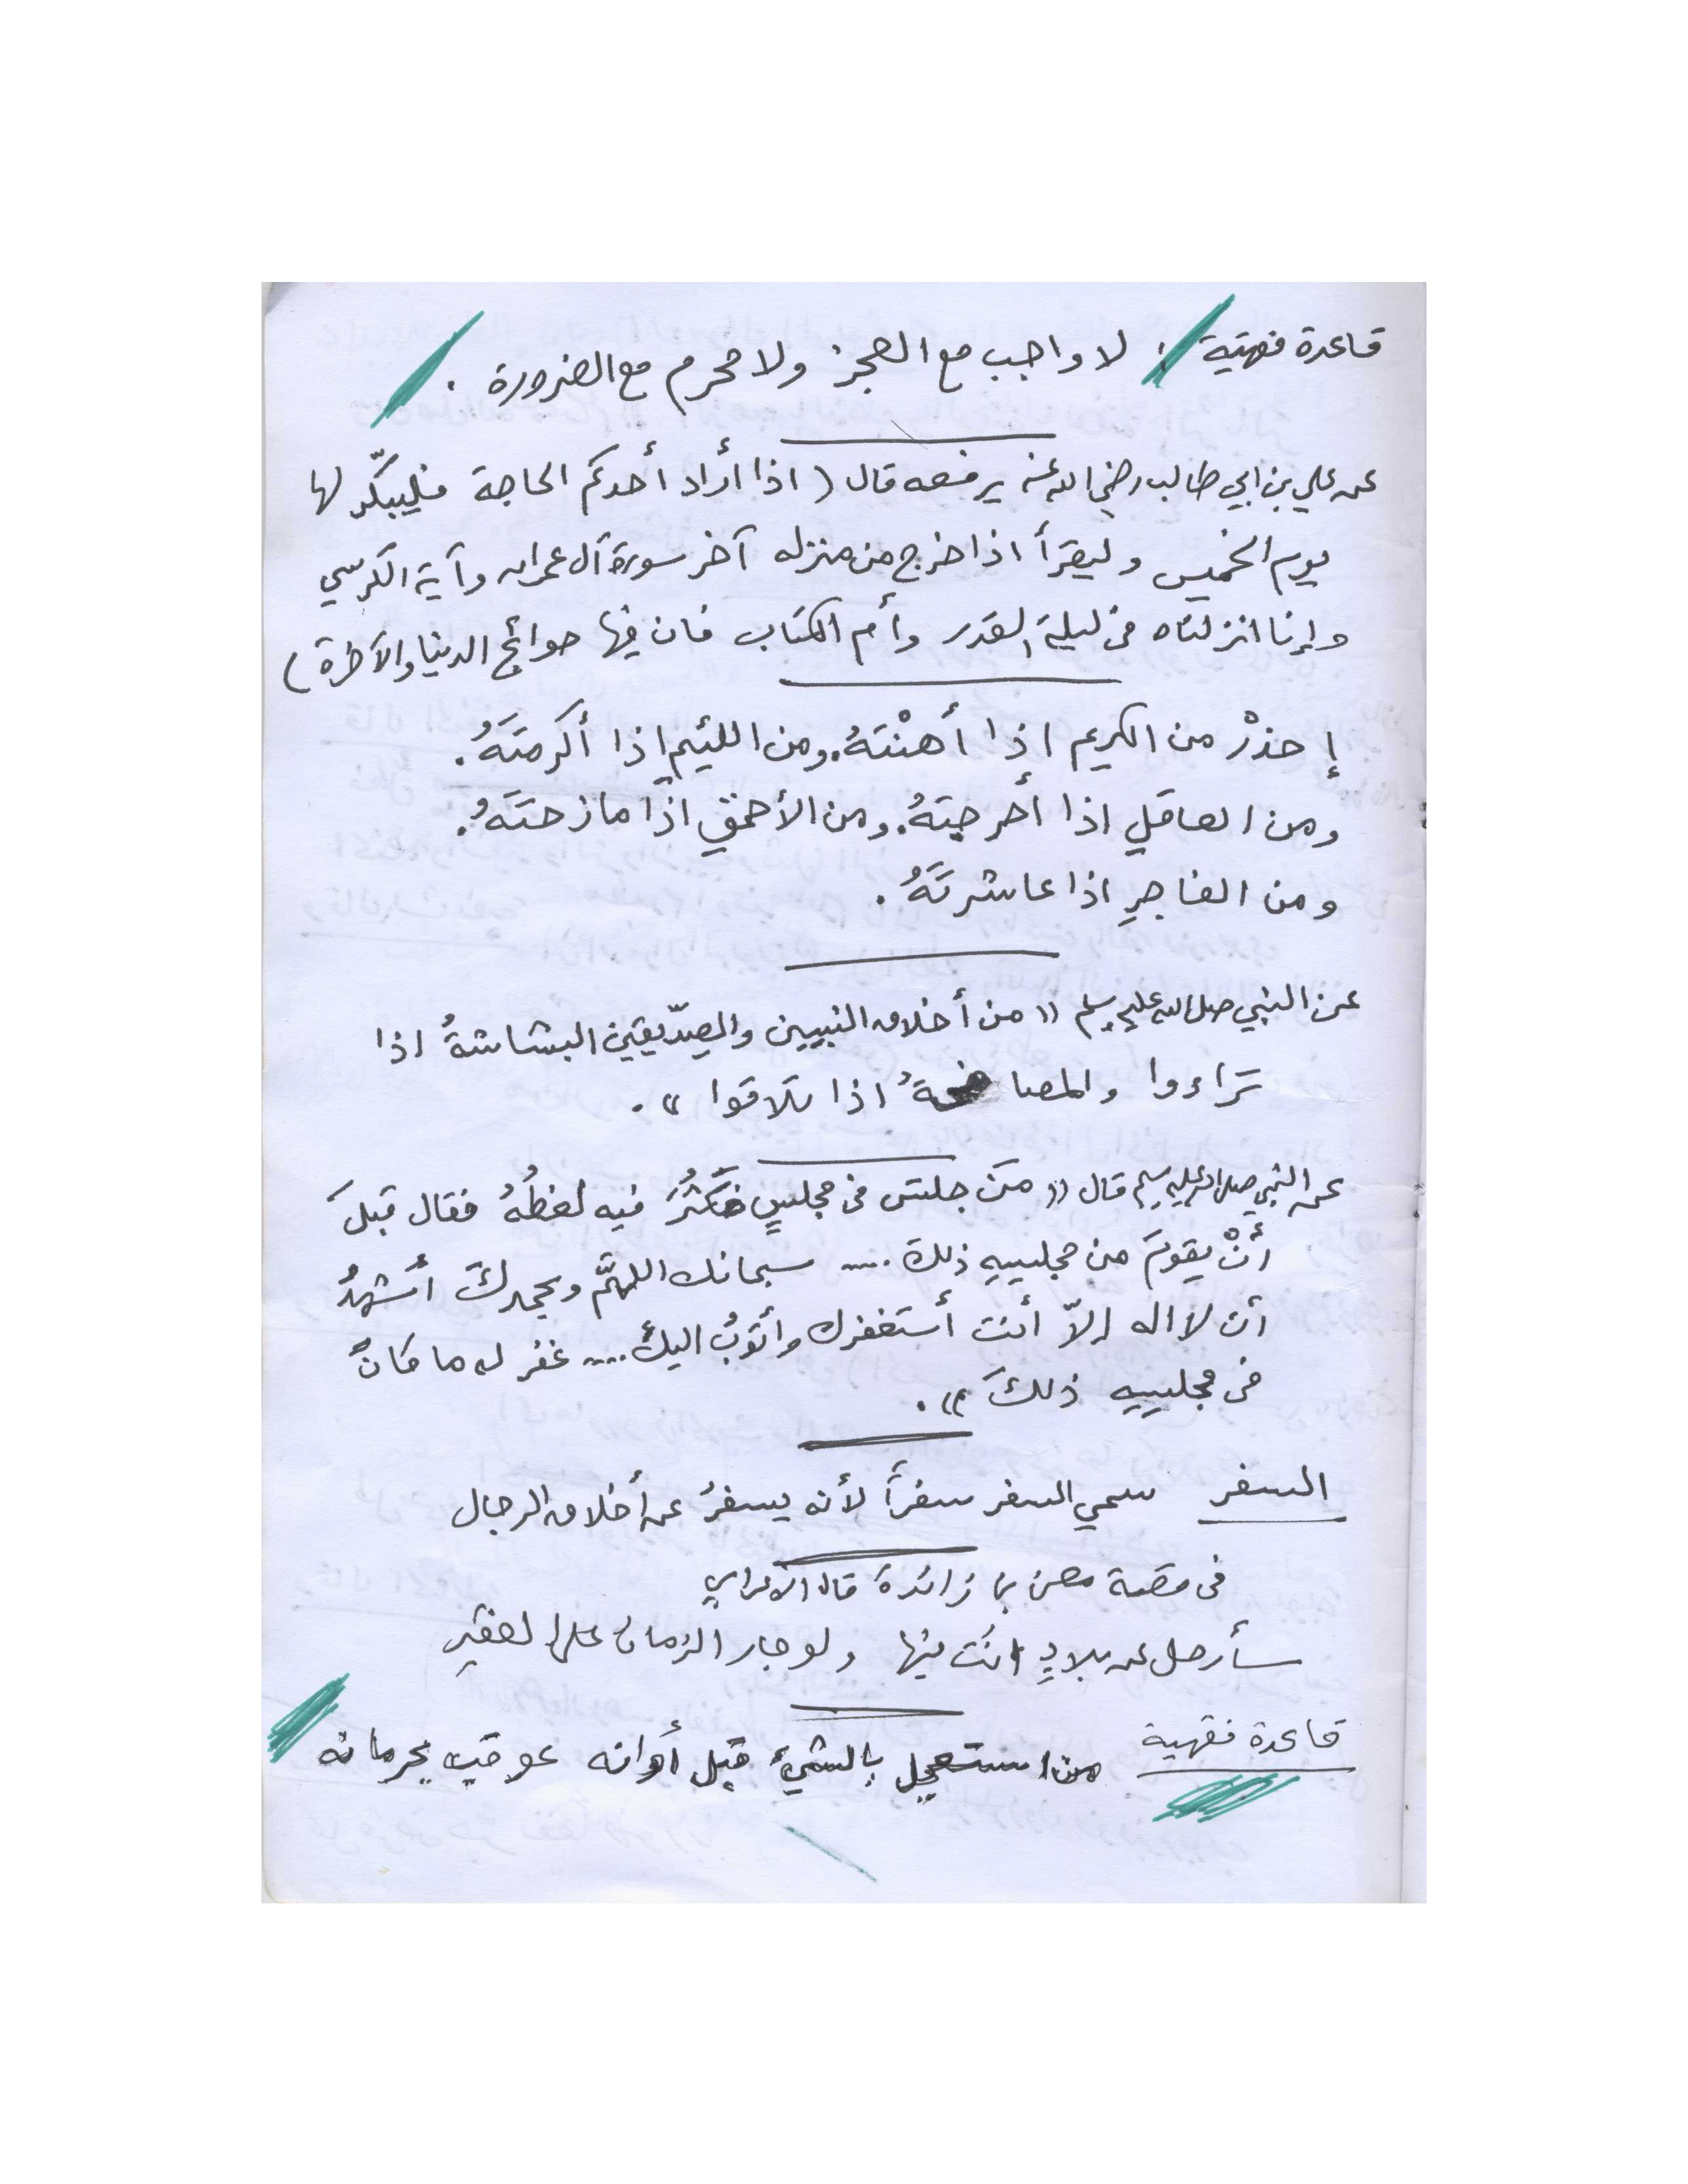 قاعدة فقهية : لا واجب مع العجز ولا محرم مع الضرورة .
عن علي بن ابي طالب رضي الله عنه يرفعه قال ( اذا أراد أحدكم الحاجة فليبكّر لها
يوم الخميس وليقرأ اذا خرج من منزله آخر سورة آل عمران وآية الكرسي
وإنا انزلناه في ليلة القدر وأم الكتاب فان فيها حوائج الدنيا والآخرة )
إحذرْ من الكريم إذا أهنْتَهُ. ومن اللئيم إذا أكرمتَهُ.
ومن العاقل اذا أحرجتهُ. ومن الأحمق اذا مازحتَهُ.
ومن الفاجرِ اذا عاشرتَهُ .
عن النبي صلى الله عليه وسلم (( من أخلاق النبيين والصِدّيقين البشاشةُ اذا
تَراءوا والمصافحةُ اذا تلاقوا )) .
عن النبي صلى الله عليه وسلم قال (( مَن جلسَ في مجلسٍ فكَثُرَ فيه لغطُهُ فقال قبلَ
أنْ يقومَ من مجلسِهِ ذلك .... سبحانك اللهمَّ وبحمدكَ أشهدُ
أن لا اله إلاّ أنت أستغفرك وأتوبُ اليكَ .... غفر له ما كانَ
في مجلسِهِ ذلكَ )) .
السفر سمي السفر سفراً لأنه يسفرُ عن أخلاق الرجال
في قصة معن بن زائدة قال الاعرابي
سأرحل عن بلادٍ انتَ فيها ولو جار الزمان على الفقيرِ
قاعدة فقهية من استعجل بالشيء قبل أوانه عوقب بحرمانه